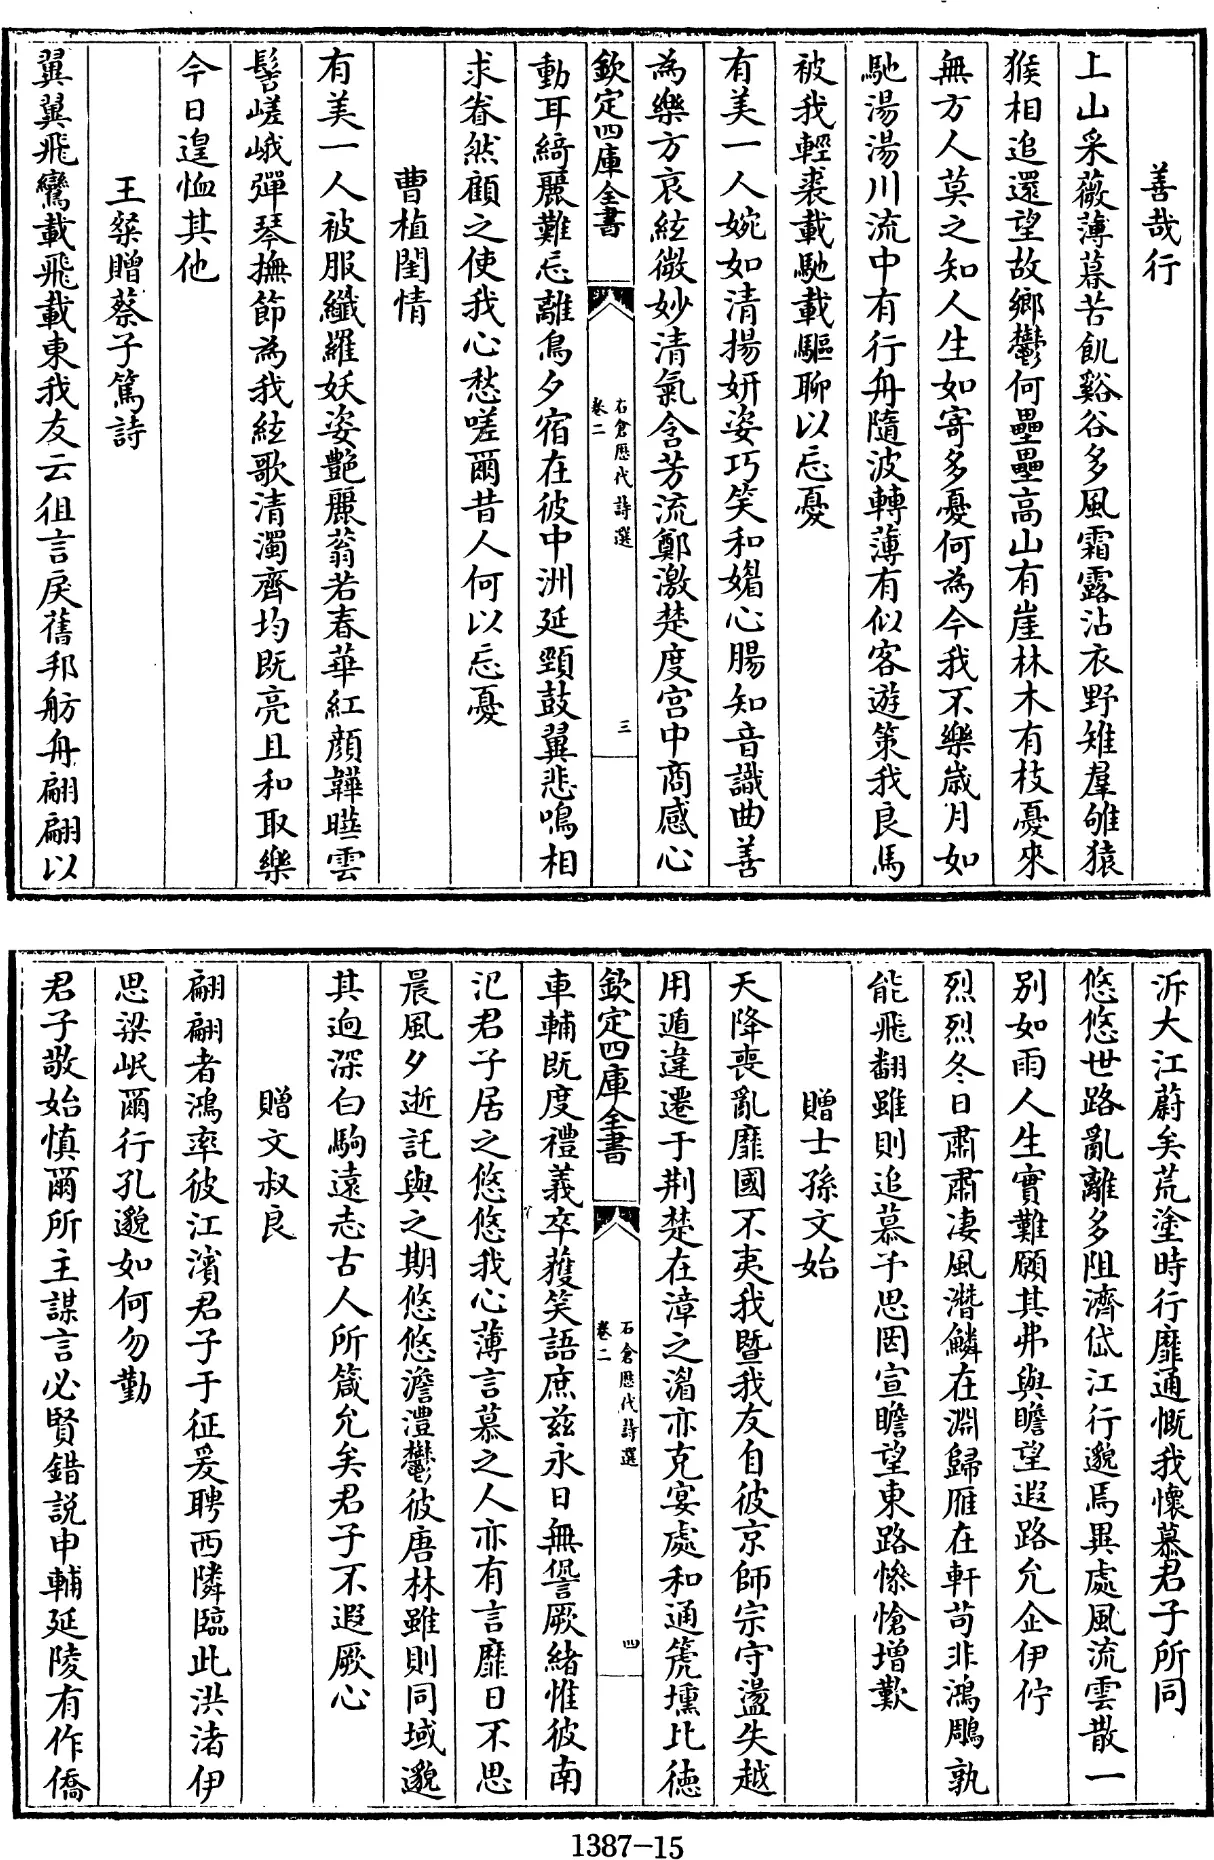 善哉行
上山采薇薄暮苦飢谿谷多風霜露沾衣野雉羣雊猿
猴相追還望故鄉鬱何壘壘高山有崖林木有枝憂來
無方人莫之知人生如寄多憂何為今我不樂歲月如
馳湯湯川流中有行舟隨波轉薄有似客遊策我良馬
被我輕裘載馳載驅聊以忘憂
有美一人婉如清揚妍姿巧笑和媚心腸知音識曲善
為樂方哀絃微妙清氣含芳流鄭激楚度宮中商感心
欽定四庫全書
石倉歷代詩選
卷二
三
動耳綺麗難忘離鳥夕宿在彼中洲延頸鼓翼悲鳴相
求眷然顧之使我心愁嗟爾昔人何以忘憂
曹植閨情
有美一人被服纖羅妖姿艷麗蓊若春華紅顏韡曄雲
髻嵯峨彈琴撫節為我絃歌清濁齊均既亮且和取樂
今日遑恤其他
王粲贈蔡子篤詩
翼翼飛鸞載飛載東我友云徂言戾舊邦舫舟翩翩以
泝大江蔚矣荒塗時行靡通慨我懷慕君子所同
悠悠世路亂離多阻濟岱江行邈焉異處風流雲散一
別如雨人生實難願其弗與瞻望遐路允企伊佇
烈烈冬日肅肅淒風潛鱗在淵歸雁在軒苟非鴻鵰孰
能飛翻雖則追慕予思罔宣瞻望東路慘愴增歎
贈士孫文始
天降喪亂靡國不夷我暨我友自彼京師宗守盪失越
用遁違遷于荆楚在漳之湄亦克宴處和通箎壎比德
欽定四庫全書
石倉歷代詩選
卷二
四
車輔既度禮義卒獲笑語庶茲永日無諐厥緒惟彼南
汜君子居之悠悠我心薄言慕之人亦有言靡日不思
晨風夕逝託與之期悠悠澹澧鬱彼唐林雖則同域邈
其迥深白駒遠志古人所箴允矣君子不遐厥心
贈文叔良
翩翩者鴻率彼江濱君子于征爰聘西隣臨此洪渚伊
思梁岷爾行孔邈如何勿勤
君子敬始慎爾所主謀言必賢錯説申輔延陵有作僑
1387-15